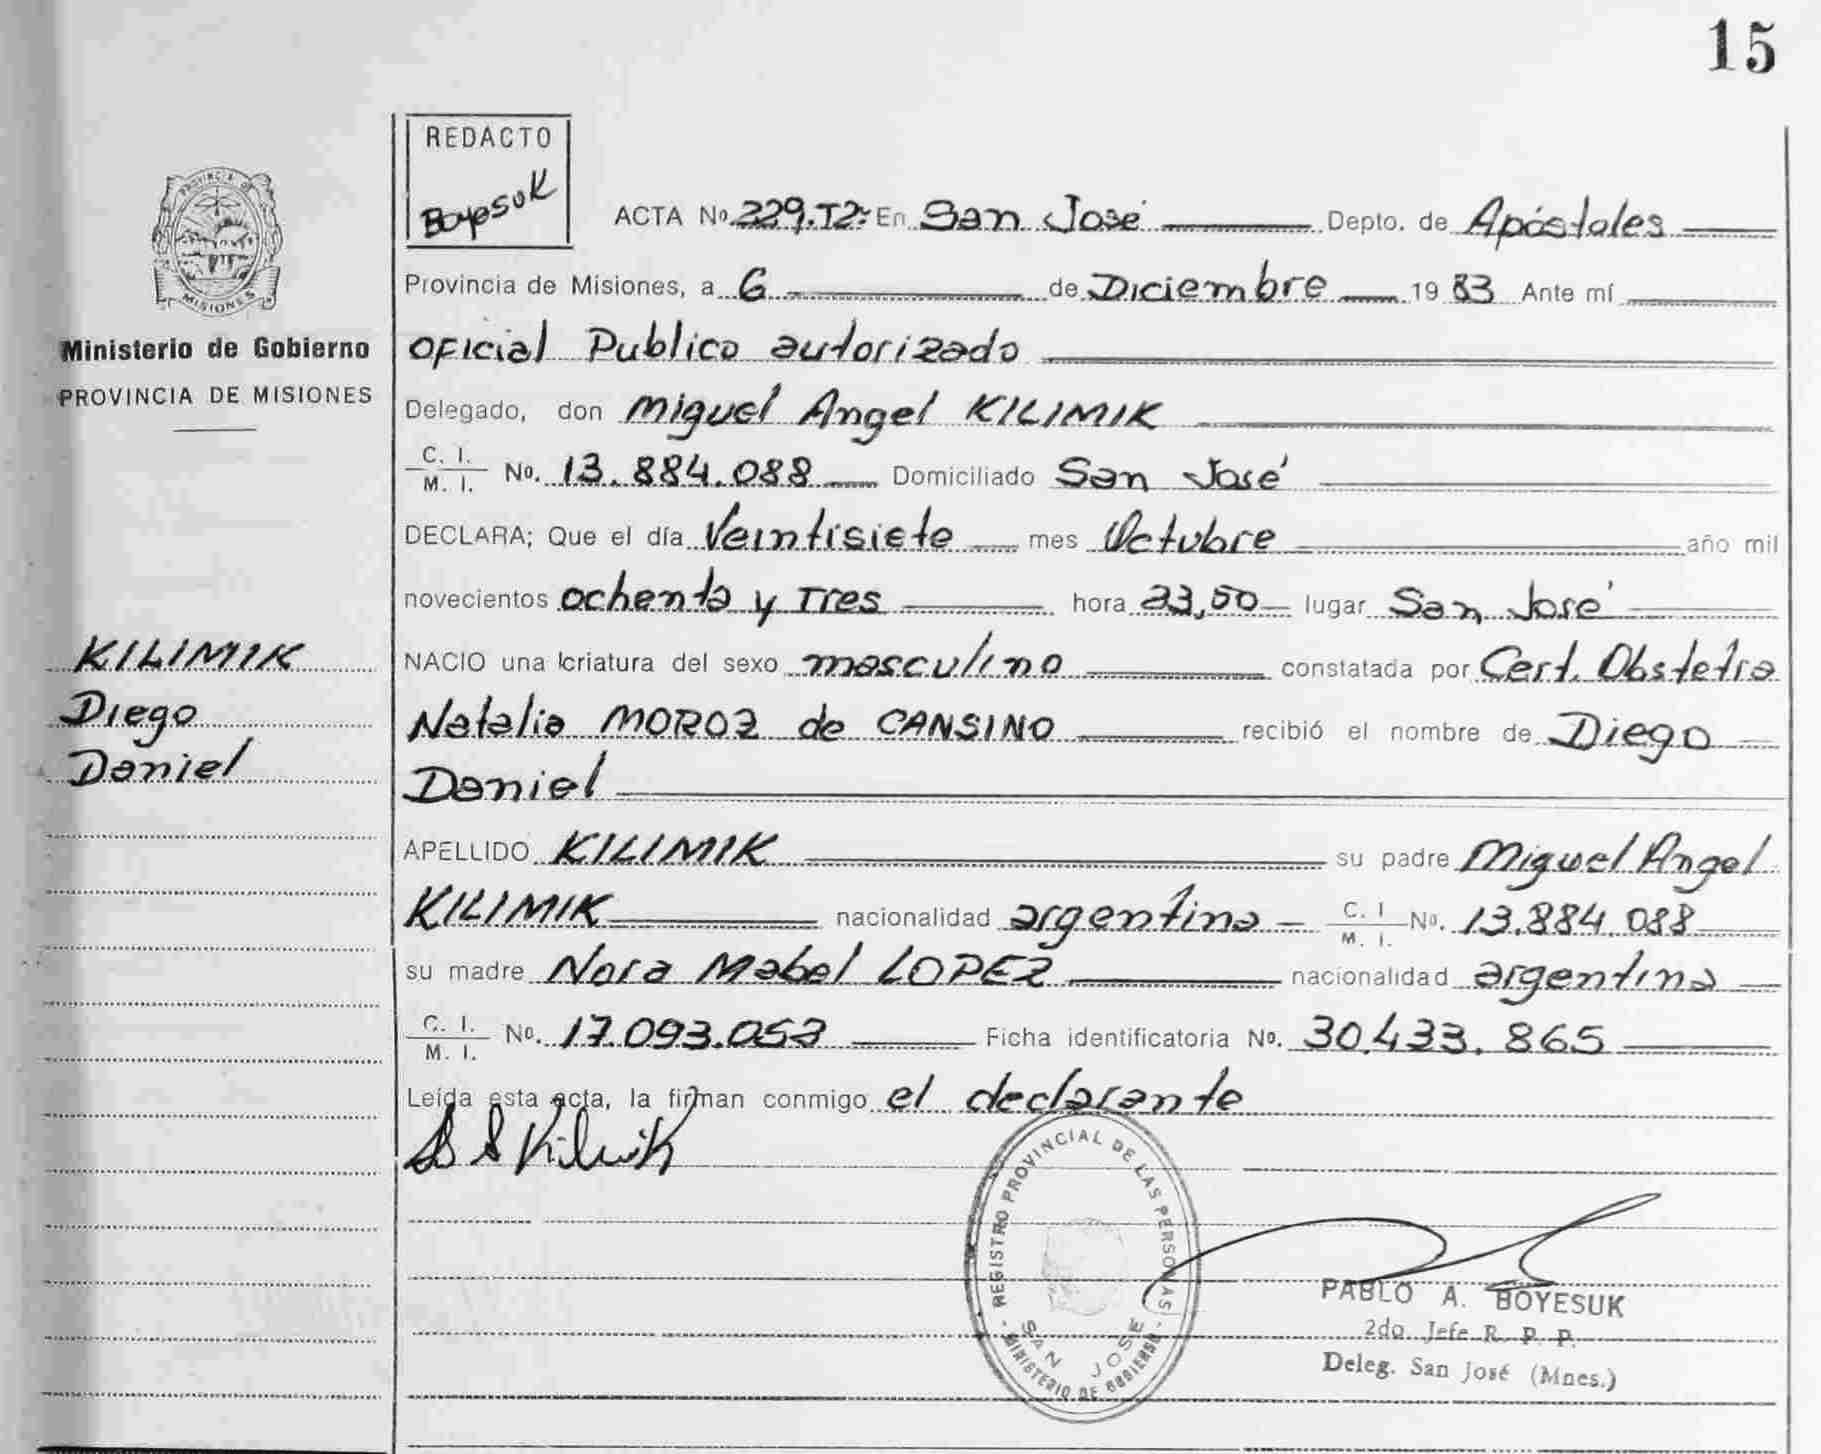 15
REDACTO
Boyesuk
ACTA Nº 229.T2: En San José Depto. de Apóstoles
Provincia de Misiones, a 6 de Diciembre 1983 Ante mí
Oficial Publico autorizado
Delegado, don Miguel Angel KILIMIK
C. I.
M. I. Nº. 13.884.088 Domiciliado San José
DECLARA; Que el día Veintisiete mes Octubre año mil
novecientos ochenta y Tres hora 23,50 lugar San José
NACIO una criatura del sexo masculino constatada por Cert. Obstetra
Natalia MOROZ de CANSINO recibió el nombre de Diego
Daniel
APELLIDO KILIMIK su padre Miguel Angel
KILIMIK nacionalidad argentina C. I.
M. I. Nº. 13.884.088
su madre Nora Mabel LOPEZ nacionalidad argentina
C. I.
M. I. Nº. 17.093.053 Ficha identificatoria Nº. 30.433.865
Leída esta acta, la firman conmigo el declarante
PROVINCIA DE
MISIONES
Ministerio de Gobierno
PROVINCIA DE MISIONES
KILIMIK
Diego
Daniel
REGISTRO PROVINCIAL DE LAS PERSONAS
SAN JOSE
MINISTERIO DE GOBIERNO
PABLO A. BOYESUK
2do. Jefe R. P. P.
Deleg. San José (Mnes.)